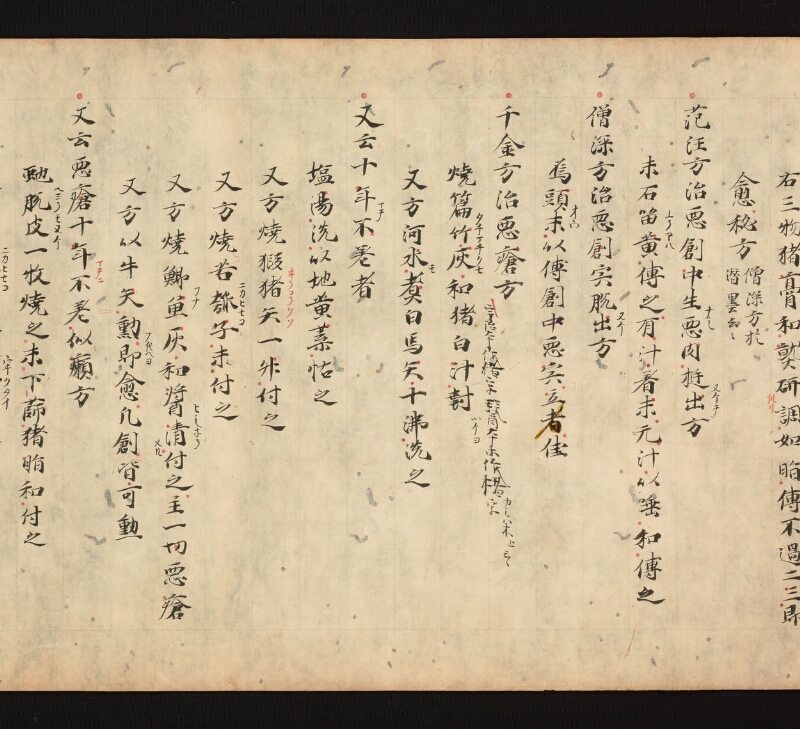 右三物猪膏和熬研調如脂傅不過二三即
愈秘方 僧深方於
范汪方治惡創中生惡肉挺出方
末石硫黄傅之有汁者末无汁以唾和傅之
僧深方治惡創宍脱出方
烏頭末以傅創中惡宍立者佳
千金方治惡瘡方
燒篇竹灰和猪白汁封
又方河水煑白馬矢十沸洗之
又云十年不差者
塩湯洗以地黄葉怗之
又方燒猳猪矢一升付之
又方燒苦瓠子末付之
又方燒鯽魚灰和醤清付之主一切惡瘡
又方以牛矢勳即愈凡創皆可勳
又云惡瘡十年不差似癩方
脱皮一枚燒之末下篩猪脂和付之